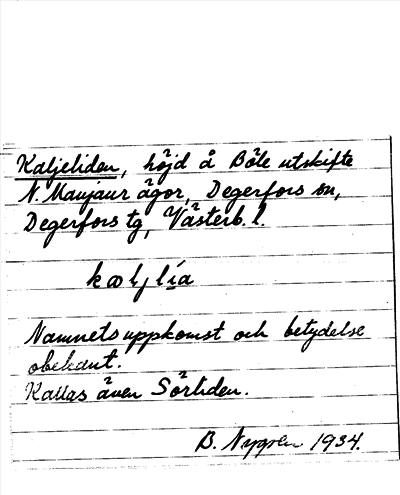 Kaljeliden, höjd å Böle utskifte
N. Maujaur ägor, Degerfors sn,
Degerfors tg, Västerb. l.
Namnets uppkomst och betydelse
obekant.
Kallas även Sörliden.
B. Nygren 1934.